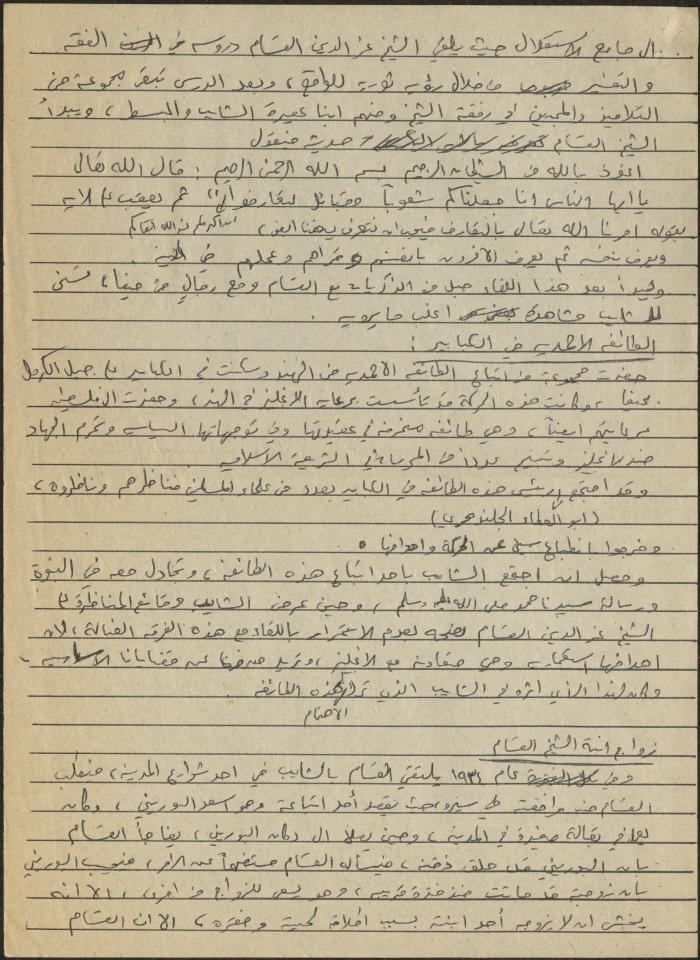 .. ال جامع الاستقلال حيث يلقي الشيخ عز الدين القسام دروسه في الفقه
والتفسير من خلال رؤيه ثوريه للواقع، وبعد الدرس تبقى مجموعة من
التلاميذ والمحبين في رفقة الشيخ ومنهم ابنا عميرة الشايب والبسط، ويبدأ
الشيخ القسام حديثه فيقول
اعوذ بالله من الشيطان الرجيم بسم الله الرحمن الرحيم : قال الله تعالى
يا ايها الناس انا جعلناكم شعوباً وقبائل لتعارفوا ثم يعقب على الايه
بقوله امرنا الله تعالى بالتعارف فيجب ان نتعرف بعضنا البعض، ان اكرمكم عند الله اتقاكم
ويعرف نفسه ثم يعرف الآخرون بأنفسهم وقراهم وعملهم في
ويبدأ بعد هذا اللقاء حبل من الذكريات مع القسام ومع رجال من حيفا،
الشايب مشاهدة اغلب ما يرويه .
الطائفه الاحمديه في الكبابير :
حضرت مجموعة من اتباع الطائفه الاحمديه من الهند وسكنت في الكبابير على جبل الكرمل
بحيفا، وكانت هذه الحركة قد تأسست برعايه الانجليز في الهند، وحضرت الى فلسطين
برعايتهم ايضاً، وهي طائفه منحرفه في عقيدتها وفي توجهاتها السياسيه وتحرم الجهاد
ضد الانجليز وتبيح عدداً من المحرمات في الشريعة الاسلاميه
وقد اجتمع رئيس هذه الطائفه في الكبابير بعدد من علماء المسلمين فناظرهم وناظروه،
(ابو العطاء الجلندهري)
وخرجوا بانطباع سيئ عن الحركة واهدافها .
وحصل ان اجتمع الشايب باحد اتباع هذه الطائفه، وتجادل معه في النبوة
ورسالة سيدنا محمد صلى الله عليه وسلم، وحين عرض الشايب وقائع المناظرة على
الشيخ عز الدين القسام نصحه بعدم الاستمرار باللقاء مع هذه الفرقه الضالة، لان
اهدافها استعماريه وهي متعاونه مع الانجليز، وتريد صرفنا عن قضايانا الاساسيه
وكان لهذا الرأي اثره في الشايب الذي ترك هذه الطائفه
الاهتمام
زواج ابنة الشيخ القسام
وفي عام ١٩٣٤ يلتقي القسام بالشايب في احد شوارع المدينه، فيطلب
القسام منه مرافقته في سيره، حيث يقصد أحد اتباعه وهو اسعد البوريني، وكان
يعمل في بقالة صغيرة في المدينه، وحين يصلا الى دكان البوريني، يفاجأ القسام
بان البوريني قد حلق ذقنه، فيسأله القسام مستفهماً عن الامر، فيجيب البوريني
بان زوجته قد ماتت منذ فترة قريبه، وهو يسعى للزواج من اخرى، الا انه
يخشى ان لا يزوجه أحد ابنته بسبب اطلاقه لحيته وفقره، الا ان القسام